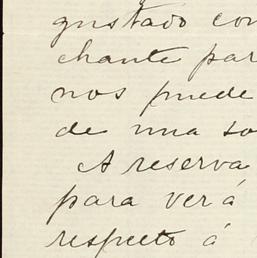 gustado con
chante par
nos puede
de una so
A reserva
para verá
respecto á